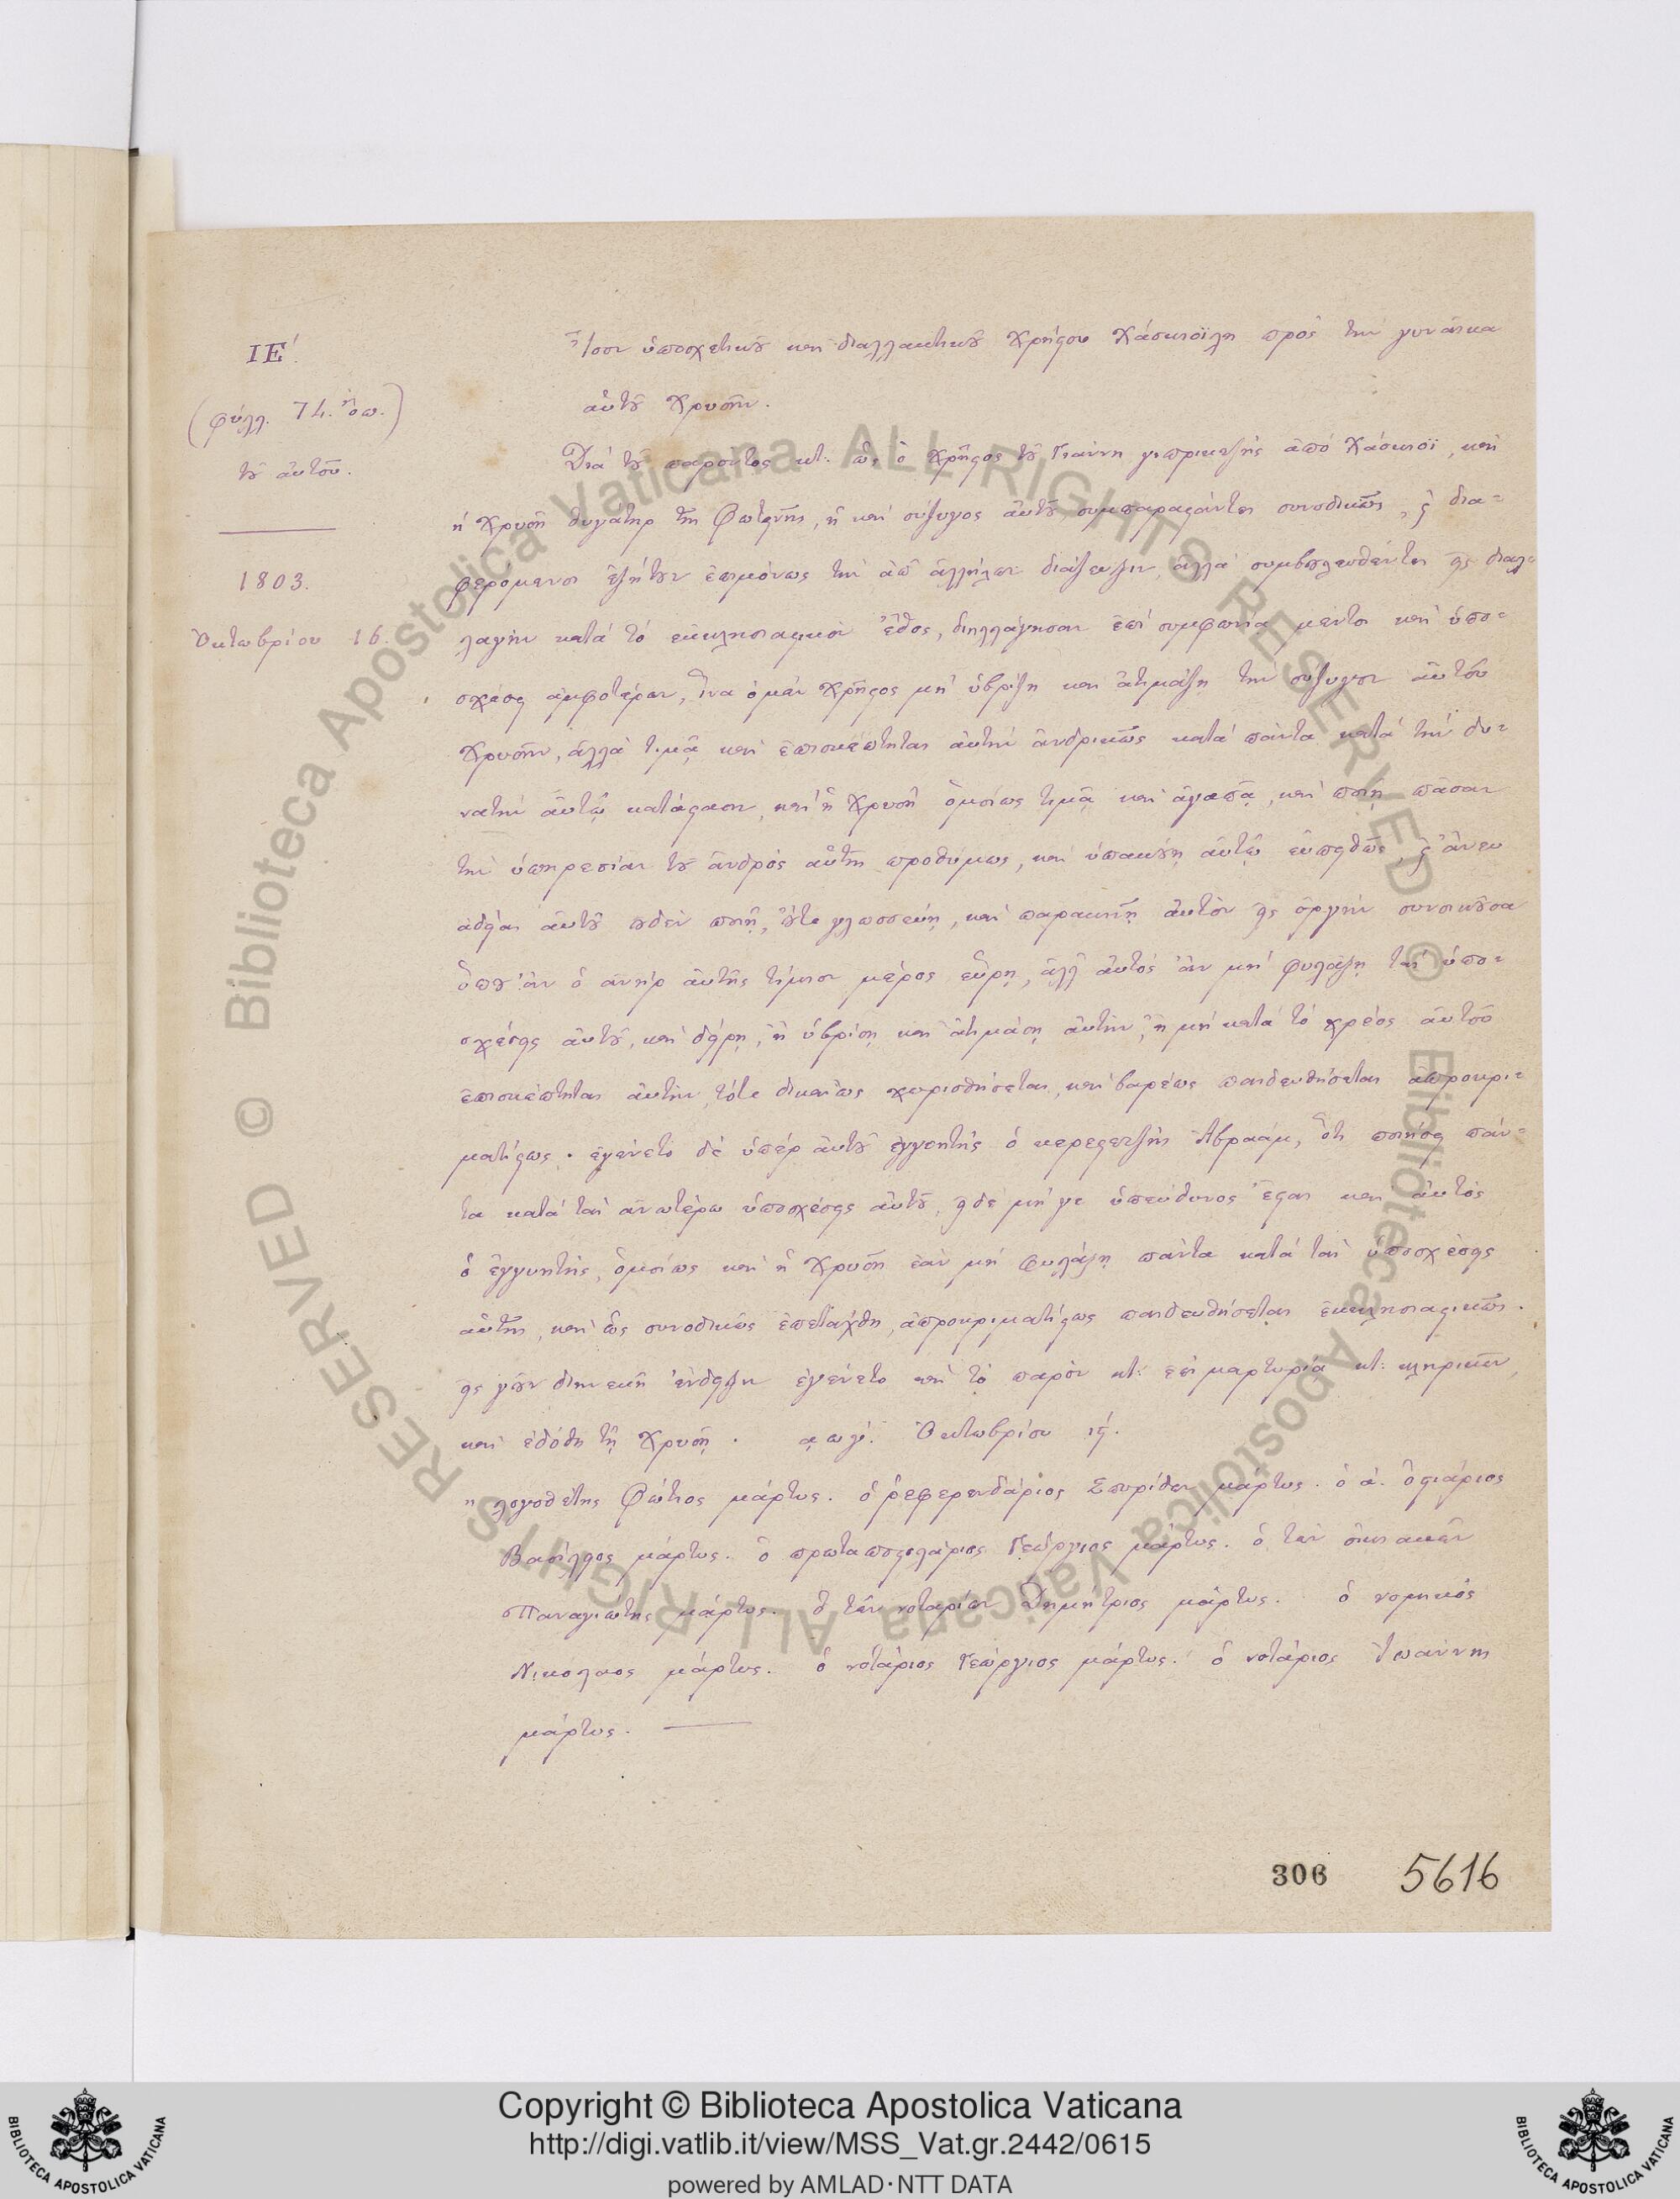 ΙΕ΄.
(φύλλ. 74. ὄπ.)
τοῦ αὐτοῦ.
1803.
Ὀκτωβρίου 16.
Ἴσον ὑποσχετικοῦ καὶ διαλλακτικοῦ Χρήστου Χάσκιοϊλη πρὸς τὴν γυναῖκα
αὐτοῦ Χρυσῆν.
Διὰ τοῦ παρόντος κτ. ὡς ὁ Χρῆστος τοῦ Γιάννη ἀπὸ Χάσκιοϊ, καὶ
ἡ Χρυσῆ θυγάτηρ τῆς Φωτεινῆς, ἡ καὶ σύζυγος αὐτοῦ συμπαραστάντες συνοδικῶς, ϛ δια-
φερόμενοι ἐζήτουν ἐπιμόνως τὴν ἀπ' ἀλλήλων διάζευξιν, ἀλλὰ συμβουλευθέντες εἰς διαλ-
λαγὴν κατὰ τὸ ἐκκλησιαστικὸν ἔθος, διηλλάγησαν ἐπὶ συμφωνίᾳ μέντοι καὶ ὑπο-
σχέσει ἀμφοτέρων, ἵνα ὁ μὲν Χρῆστος μὴ ὑβρίζῃ καὶ ἀτιμάζῃ τὴν σύζυγον αὐτοῦ
Χρυσῆν, ἀλλὰ τιμᾷ καὶ ἐπισκέπτηται αὐτὴν ἀνδρικῶς κατὰ πάντα κατὰ τὴν δυ-
νατὴν αὐτῷ κατάστασιν, καὶ ἡ Χρυσῆ ὁμοίως τιμᾷ καὶ ἀγαπᾷ, καὶ ποιῇ πᾶσαν
τὴν ὑπηρεσίαν τοῦ ἀνδρὸς αὐτῆς προθύμως, καὶ ὑπακούῃ αὐτῷ εὐπειθῶς, ϛ ἄνευ
ἀδείας αὐτοῦ οὐδὲν ποιῇ, οὔτε γλωσσεύῃ, καὶ παρακινῇ αὐτὸν εἰς ὀργὴν συνοικοῦσα
ὅπου ἂν ὁ ἀνὴρ αὐτῆς τίμιον μέρος εὕρῃ, ἀλλ' αὐτὸς ἂν μὴ φυλάξῃ τὰς ὑπο-
σχέσεις αὐτοῦ, καὶ δείρῃ, ἢ ὑβρίσῃ καὶ ἀτιμάσῃ αὐτὴν, ἢ μὴ κατὰ τὸ χρέος αὐτοῦ
ἐπισκέπτηται αὐτὴν, τότε δικαίως χωρισθήσεται, καὶ βαρέως παιδευθήσεται ἀπροκρι-
ματίστως. ἐγένετο δὲ ὑπὲρ αὐτοῦ ἐγγυητὴς ὁ κερεστετζῆς Ἀβραὰμ, ὅτι ποιήσει πάν-
τα κατὰ τὰς ἀνωτέρω ὑποσχέσεις αὐτοῦ, εἰ δὲ μή γε ὑπεύθυνος ἔσται καὶ αὐτὸς
ὁ ἐγγυητής, ὁμοίως καὶ ἡ Χρυσῆ ἐὰν μὴ φυλάξῃ πάντα κατὰ τὰς ὑποσχέσεις
αὐτῆς, καὶ ὡς συνοδικῶς ἐπετάχθη, ἀπροκριματίστως παιδευθήσεται ἐκκλησιαστικῶς.
εἰς γοῦν διηνεκῆ ἔνδειξιν ἐγένετο καὶ τὸ παρὸν κτ: ἐπὶ μαρτυρίᾳ κτ: κληρικῶν,
καὶ ἐδόθη τῇ Χρυσῇ. αωγ΄. Ὀκτωβρίου ιϛ΄.
ὁ λογοθέτης Φώτιος μάρτυς. ὁ ῥεφερενδάριος Σπυρίδων μάρτυς. ὁ ά. ὀστιάριος
Βασίλειος μάρτυς. ὁ πρωταποστολάριος Γεώργιος μάρτυς. ὁ τῶν οἰκιακῶν
Παναγιώτης μάρτυς. ὁ τῶν νοταρίων Δημήτριος μάρτυς. ὁ νομικὸς
Νικόλαος μάρτυς. ὁ νοτάριος Γεώργιος μάρτυς. ὁ νοτάριος Ἰωάννης
μάρτυς.
306 5616
© Biblioteca Apostolica Vaticana ALL RIGHTS RESERVED © Biblioteca Apostolica Vaticana ALL RIGHTS RESERVED
BIBLIOTECA APOSTOLICA VATICANA
Copyright © Biblioteca Apostolica Vaticana
http://digi.vatlib.it/view/MSS_Vat.gr.2442/0615
powered by AMLAD·NTT DATA
BIBLIOTECA APOSTOLICA VATICANA